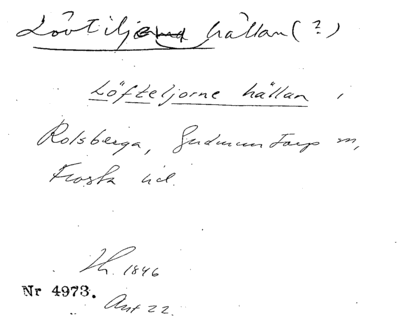 Lövtiljorna hållan (?)
Löfteljorne hållan i
Rolsberga, Gudmuntorp m,
Frosta hd.
Th. 1846
Nr 4973.
Ant 22.